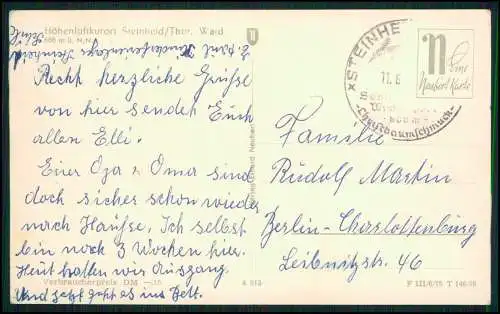 Höhenluftkurort Steinheid/Thür. Wald
808 m ü. N.N.
Recht herzliche Grüße
von hier sendet Euch
allen Elli.
Eure Oza + Oma sind
doch sicher schon wieder
nach Hause. Ich selbst
bin noch 3 Wochen hier.
Heut hatten wir Ausgang.
Und jetzt geht es ins Bett.
Verbraucherpreis DM —.15
A 813
STEINHE
11.6
Christbaumschmuck
n
Eine
Neubert Karte
Familie
Rudolf Martin
Berlin-Charlottenburg
Leibnitzstr. 46
F 121/6/75 T 146/56